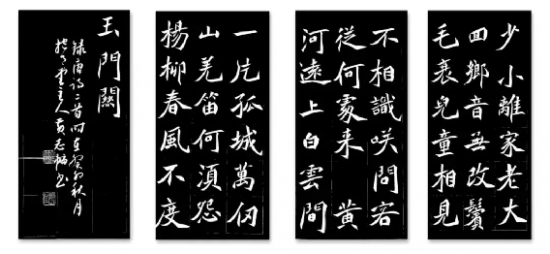 少小離家老大
回鄉音無改鬢
毛衰兒童相見
不相識咲問客
從何處來 黄
河遠上白雲間
一片孤城萬仞
山羌笛何須怨
楊柳春風不度
玉門關
録唐詩二首时在癸卯秋月
堂主人黄志书